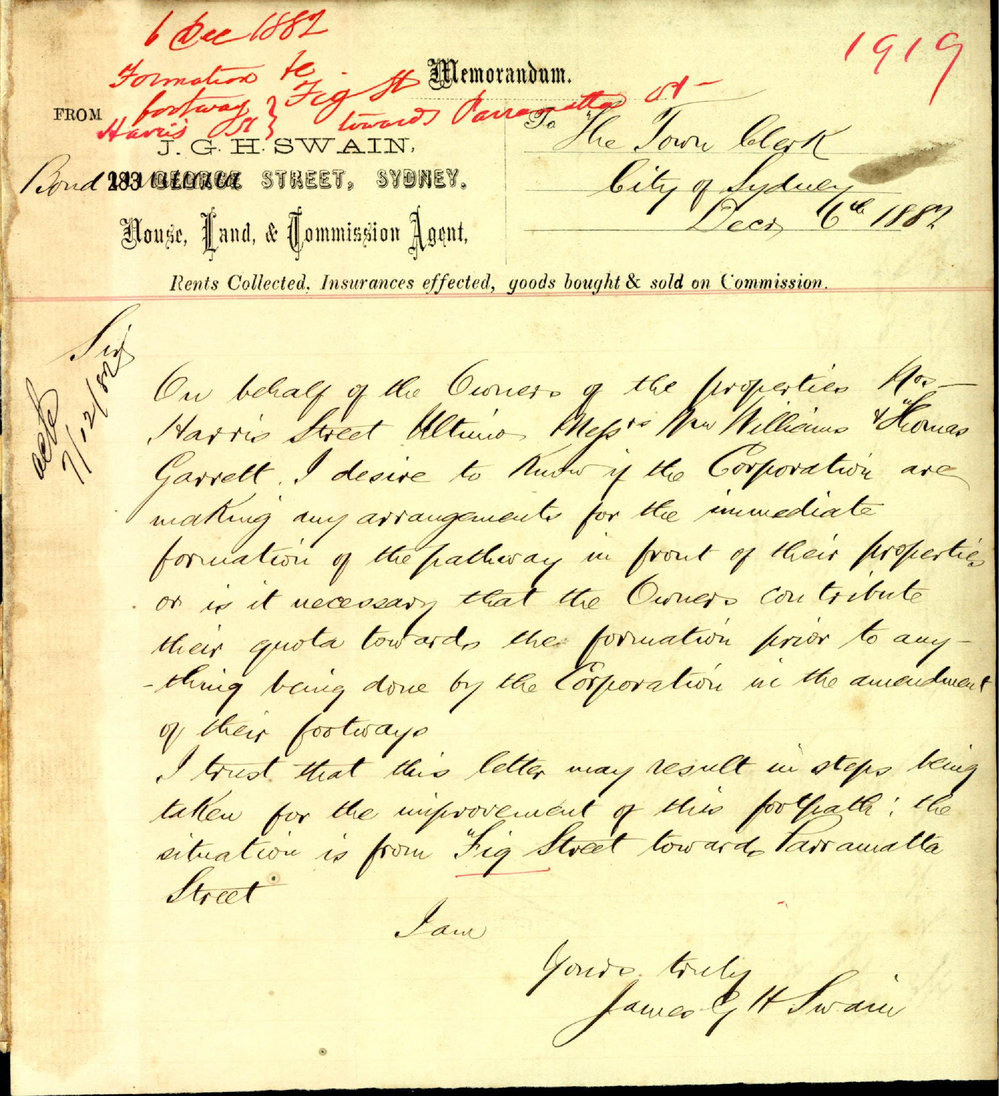 6 Dec 1882
1919
Formation &c
footway } Fig St
Harris St } towards Parramatta St
Memorandum.
FROM
J. G. H. SWAIN,
Bond STREET, SYDNEY.
House, Land, & Commission Agent,
To The Town Clerk
City of Sydney
Decr 6th 1882
Rents Collected, Insurances effected, goods bought & sold on Commission.
Sir
7/12/82
On behalf of the Owners of the properties Nos —
Harris Street Ultimo Messrs Wm Williams & Thomas
Garrett. I desire to know if the Corporation are
making any arrangements for the immediate
formation of the pathway in front of their properties
or is it necessary that the Owners contribute
their quota towards the formation prior to any-
-thing being done by the Corporation in the amendment
of their footways
I trust that this letter may result in steps being
taken for the improvement of this footpath: the
situation is from "Fig Street towards Parramatta
Street
I am
Yours truly
James G H Swain